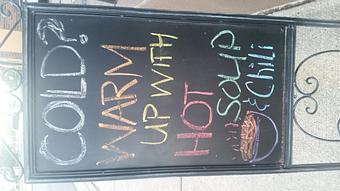 COLD?
WARM
UP WITH
HOT
SOUP
& Chili